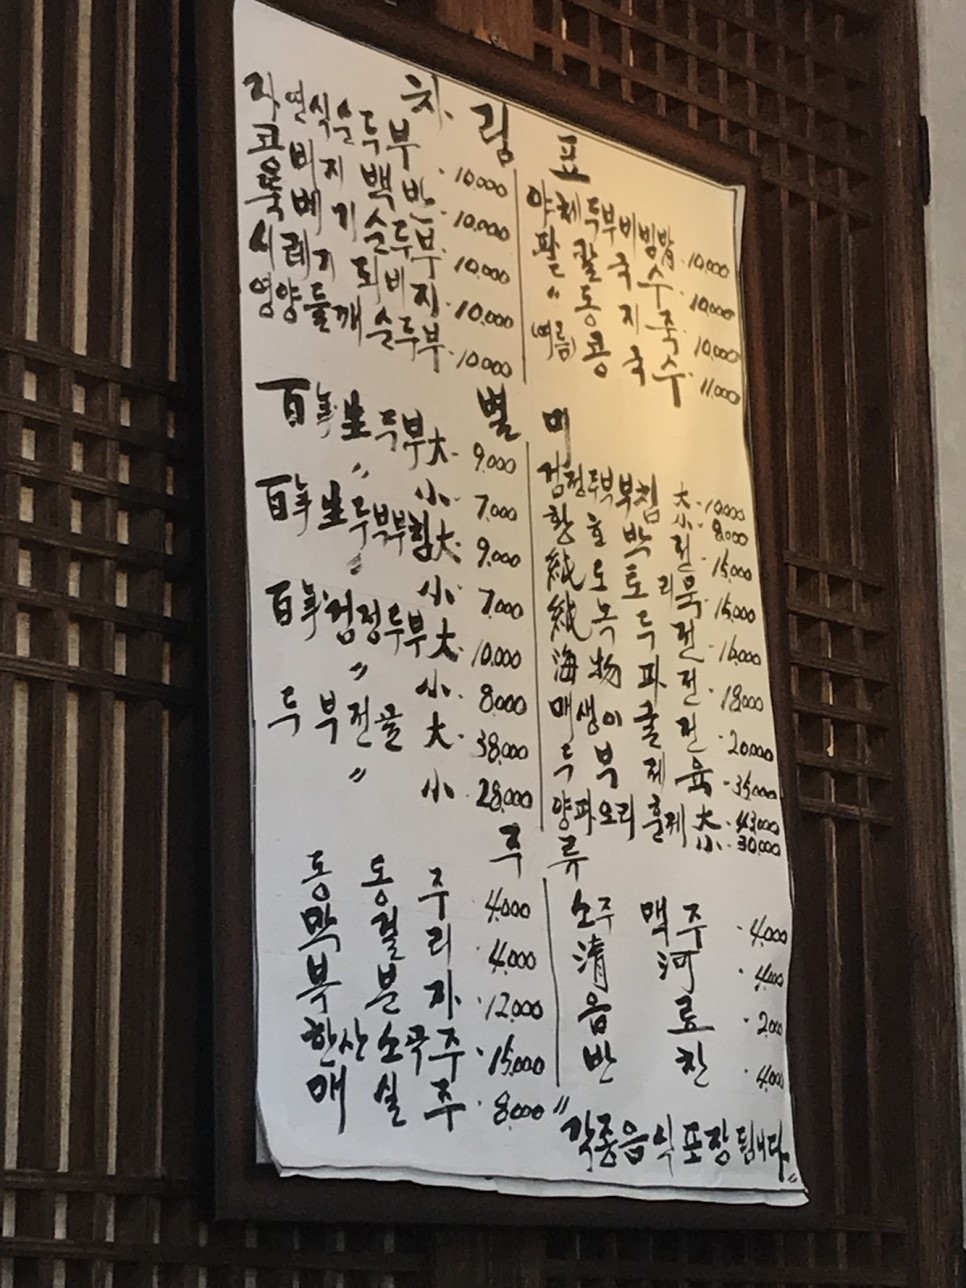 차림표
자연식순두부 10,000
콩비지백반 10,000
뚝배기순두부 10,000
시레기되비지 10,000
영양들깨순두부 10,000
야채두부비빔밥 10,000
팥칼국수 10,000
〃 동지죽 10,000
(여름) 콩국수 11,000
별미
百年生두부大 9,000
〃 小 7,000
百年生두부부침大 9,000
〃 小 7,000
百年검정두부大 10,000
〃 小 8,000
두부전골 大 38,000
〃 小 28,000
검정두부부침 大 10,000
小 8,000
황호박전 15,000
도토리묵 15,000
녹두전 16,000
海物파전 18,000
매생이굴전 20,000
두부제육 35,000
양파오리훈제 大 43,000
小 30,000
주류
동동주 4,000
막걸리 4,000
복분자 12,000
한산소곡주 15,000
매실주 8,000
소주 맥주 4,000
清河 4,000
음료 2,000
반찬 4,000
〃각종음식포장됩니다〃